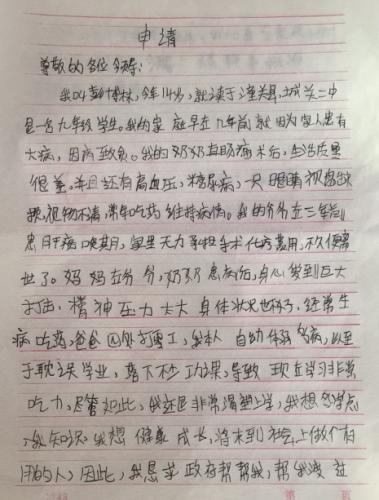 申请
尊敬的各位领导：
我叫彭博林，今年14岁，就读于潼关县城关二中
是一名九年级学生。我的家庭早在几年前就因为家人患有
大病，因病致贫。我的奶奶直肠癌术后，生活质量
很差，并且还有高血压，糖尿病，一只眼睛视盘缺
损，视物不清，常年吃药维持病情。我的爷爷在三年前
患肝癌晚期，家里无力承担手术化疗费用，不久便离
世了。妈妈在爷爷，奶奶患病后，身心受到巨大
打击，精神压力太大身体状况也不好，经常生
病吃药，爸爸四处打零工，我本人自幼体弱多病，以至
于耽误学业，落下不少功课，导致现在学习非常
吃力，尽管如此，我还是非常渴望上学，我想多学点
知识我想健康成长，将来到社会上做个有
用的人，因此，我恳求政府帮帮我，帮我渡过